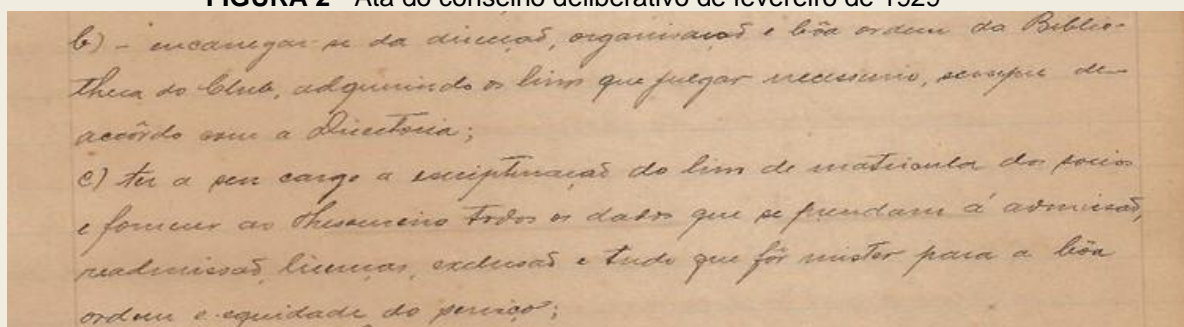 FIGURA 2 - Ata do conselho deliberativo de fevereiro de 1929
b) - encarregar-se da direcção, organisação e bôa ordem da Biblio-
theca do Club, adquirindo os livros que julgar necessario, sempre de
accôrdo com a Directoria;
c) ter a seu cargo a escripturação do livro de matricula dos socios
e fornecer ao Thesoureiro todos os dados que se prendam á admissão,
readmissão, licenças, exclusão e tudo que fôr mister para a bôa
ordem e equidade do serviço;